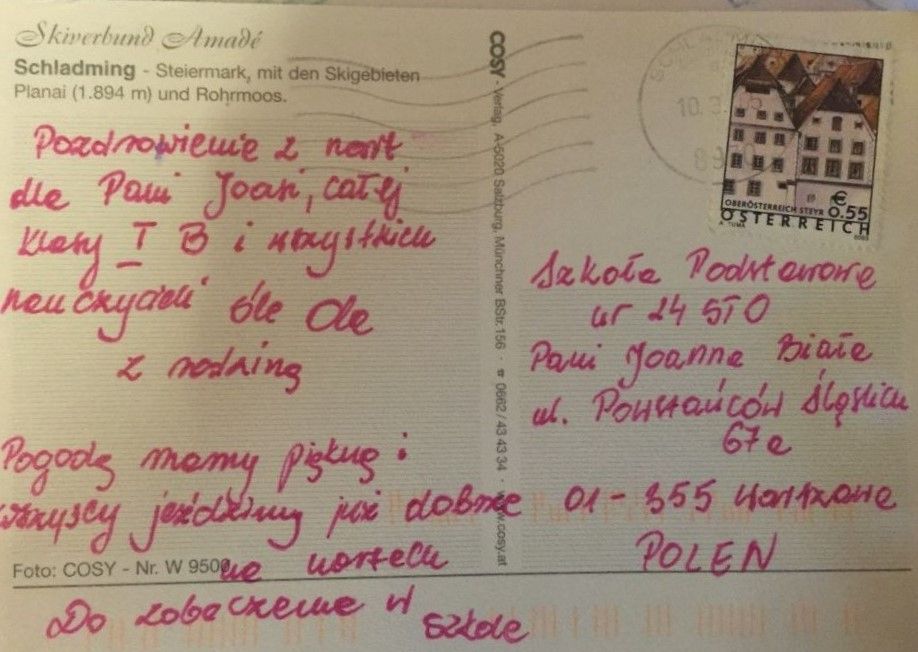 Skiverbund Amadé
Schladming - Steiermark, mit den Skigebieten
Planai (1.894 m) und Rohrmoos.
Pozdrowienie z nart
dla Pani Joasi, całej
klasy I B i wszystkich
nauczycieli śle Ola
z rodziną
Pogodę mamy piękną i
wszyscy jeździmy już dobrze
na nartach
Do zobaczenia w szkole
Foto: COSY - Nr. W 9500
COSY - Verlag, A-5020 Salzburg, Münchner BStr. 156 · ☎ 0662 / 43 43 34 · www.cosy.at
10. 3.
OBERÖSTERREICH STEYR
€ 0.55
ÖSTERREICH
A. TUMA
Szkoła Podstawowa
nr 24 STO
Pani Joanna Biała
ul. Powstańców Śląskich
67a
01-355 Warszawa
POLEN